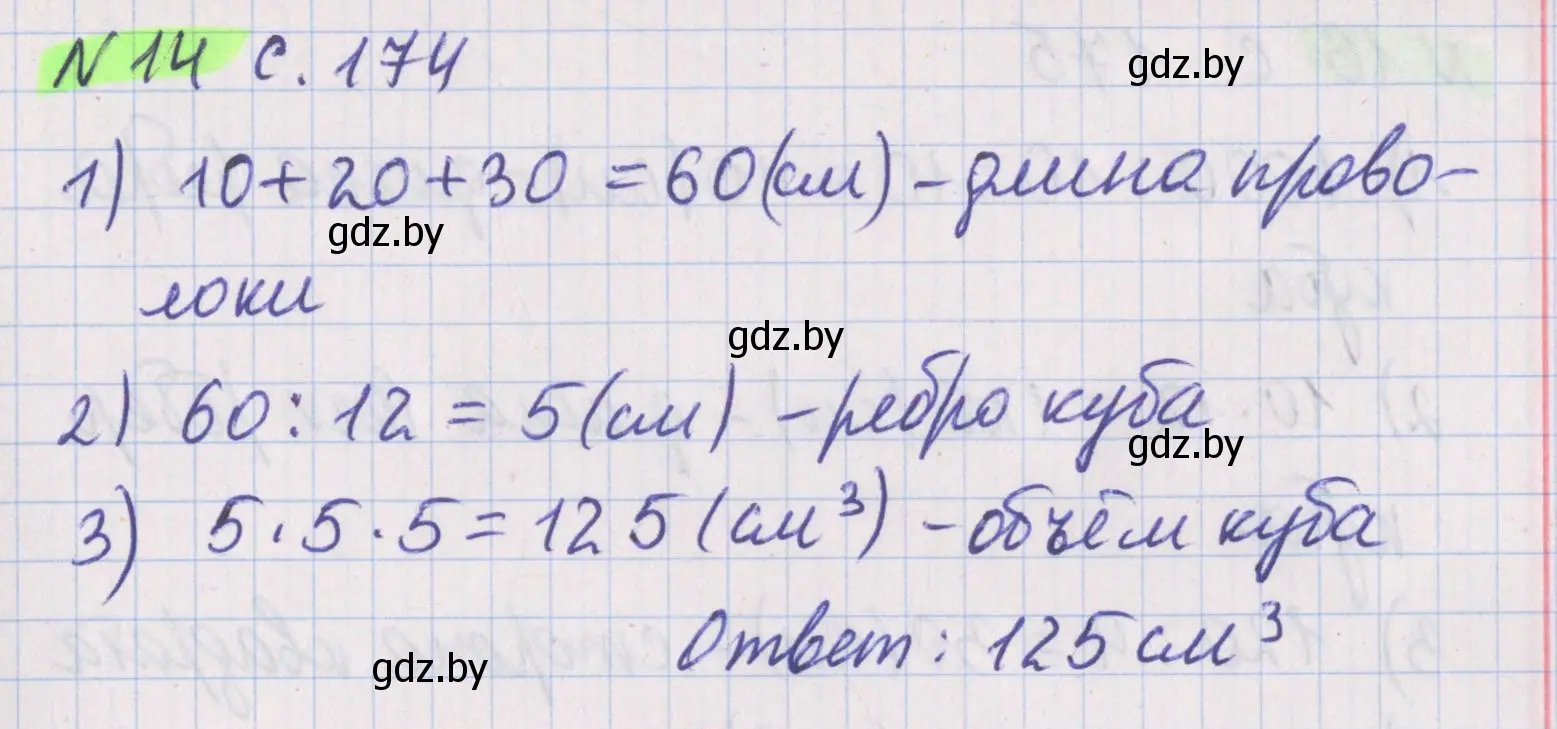 N 14 с. 174
gdz.by
1) 10+20+30 = 60(см) - длина прово-
gdz.by
локи
gdz.by
2) 60:12 = 5(см) - ребро куба
gdz.by
3) 5·5·5=125(см³) - объём куба
Ответ: 125 см³
gdz.by